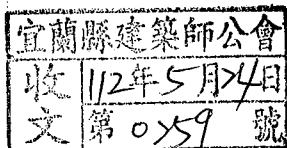 宜蘭縣建築師公會
收文
112年5月24日
第0259號